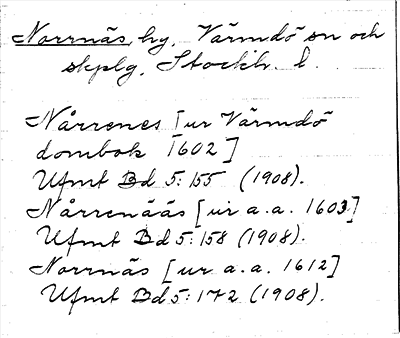 Norrnäs, by, Värmdö sn och
skplg, Stockh. l.
Nårrenes [ur Värmdö
dombok 1602]
Ufmt Bd 5:155 (1908).
Nårrenääs [ur a.a. 1603]
Ufmt Bd 5:158 (1908).
Norrnäs [ur a.a. 1612]
Ufmt Bd 5:172 (1908).